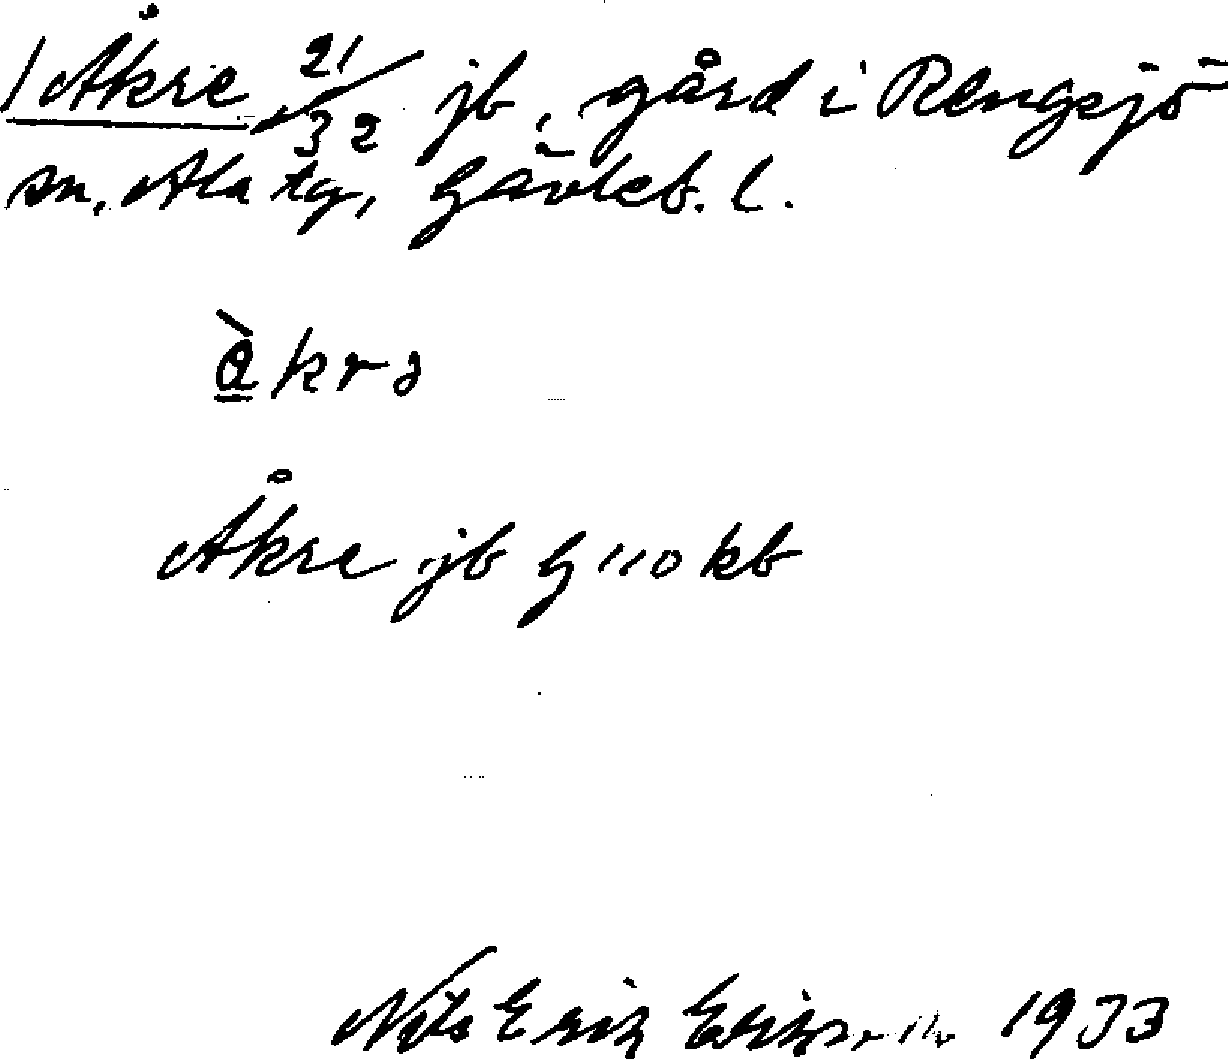 / Åkre 21/32 jb, gård i Rengsjö
sn, Ala tg, Gävleb. l.
àkrə
Åkre jb G 110 kb
Nils Erik 1933